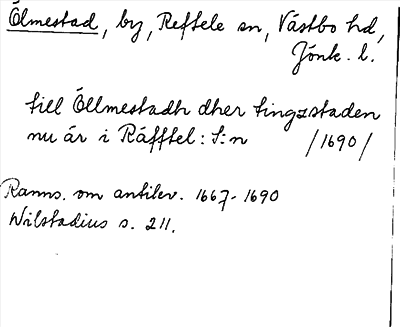 Ölmestad, by, Reftele sn, Västbo hd,
Jönk. l.
till Öllmestadh dher tingzstaden
nu är i Räfftel: S:n /1690/
Ranns. om antikv. 1667-1690
Wilstadius s. 211.